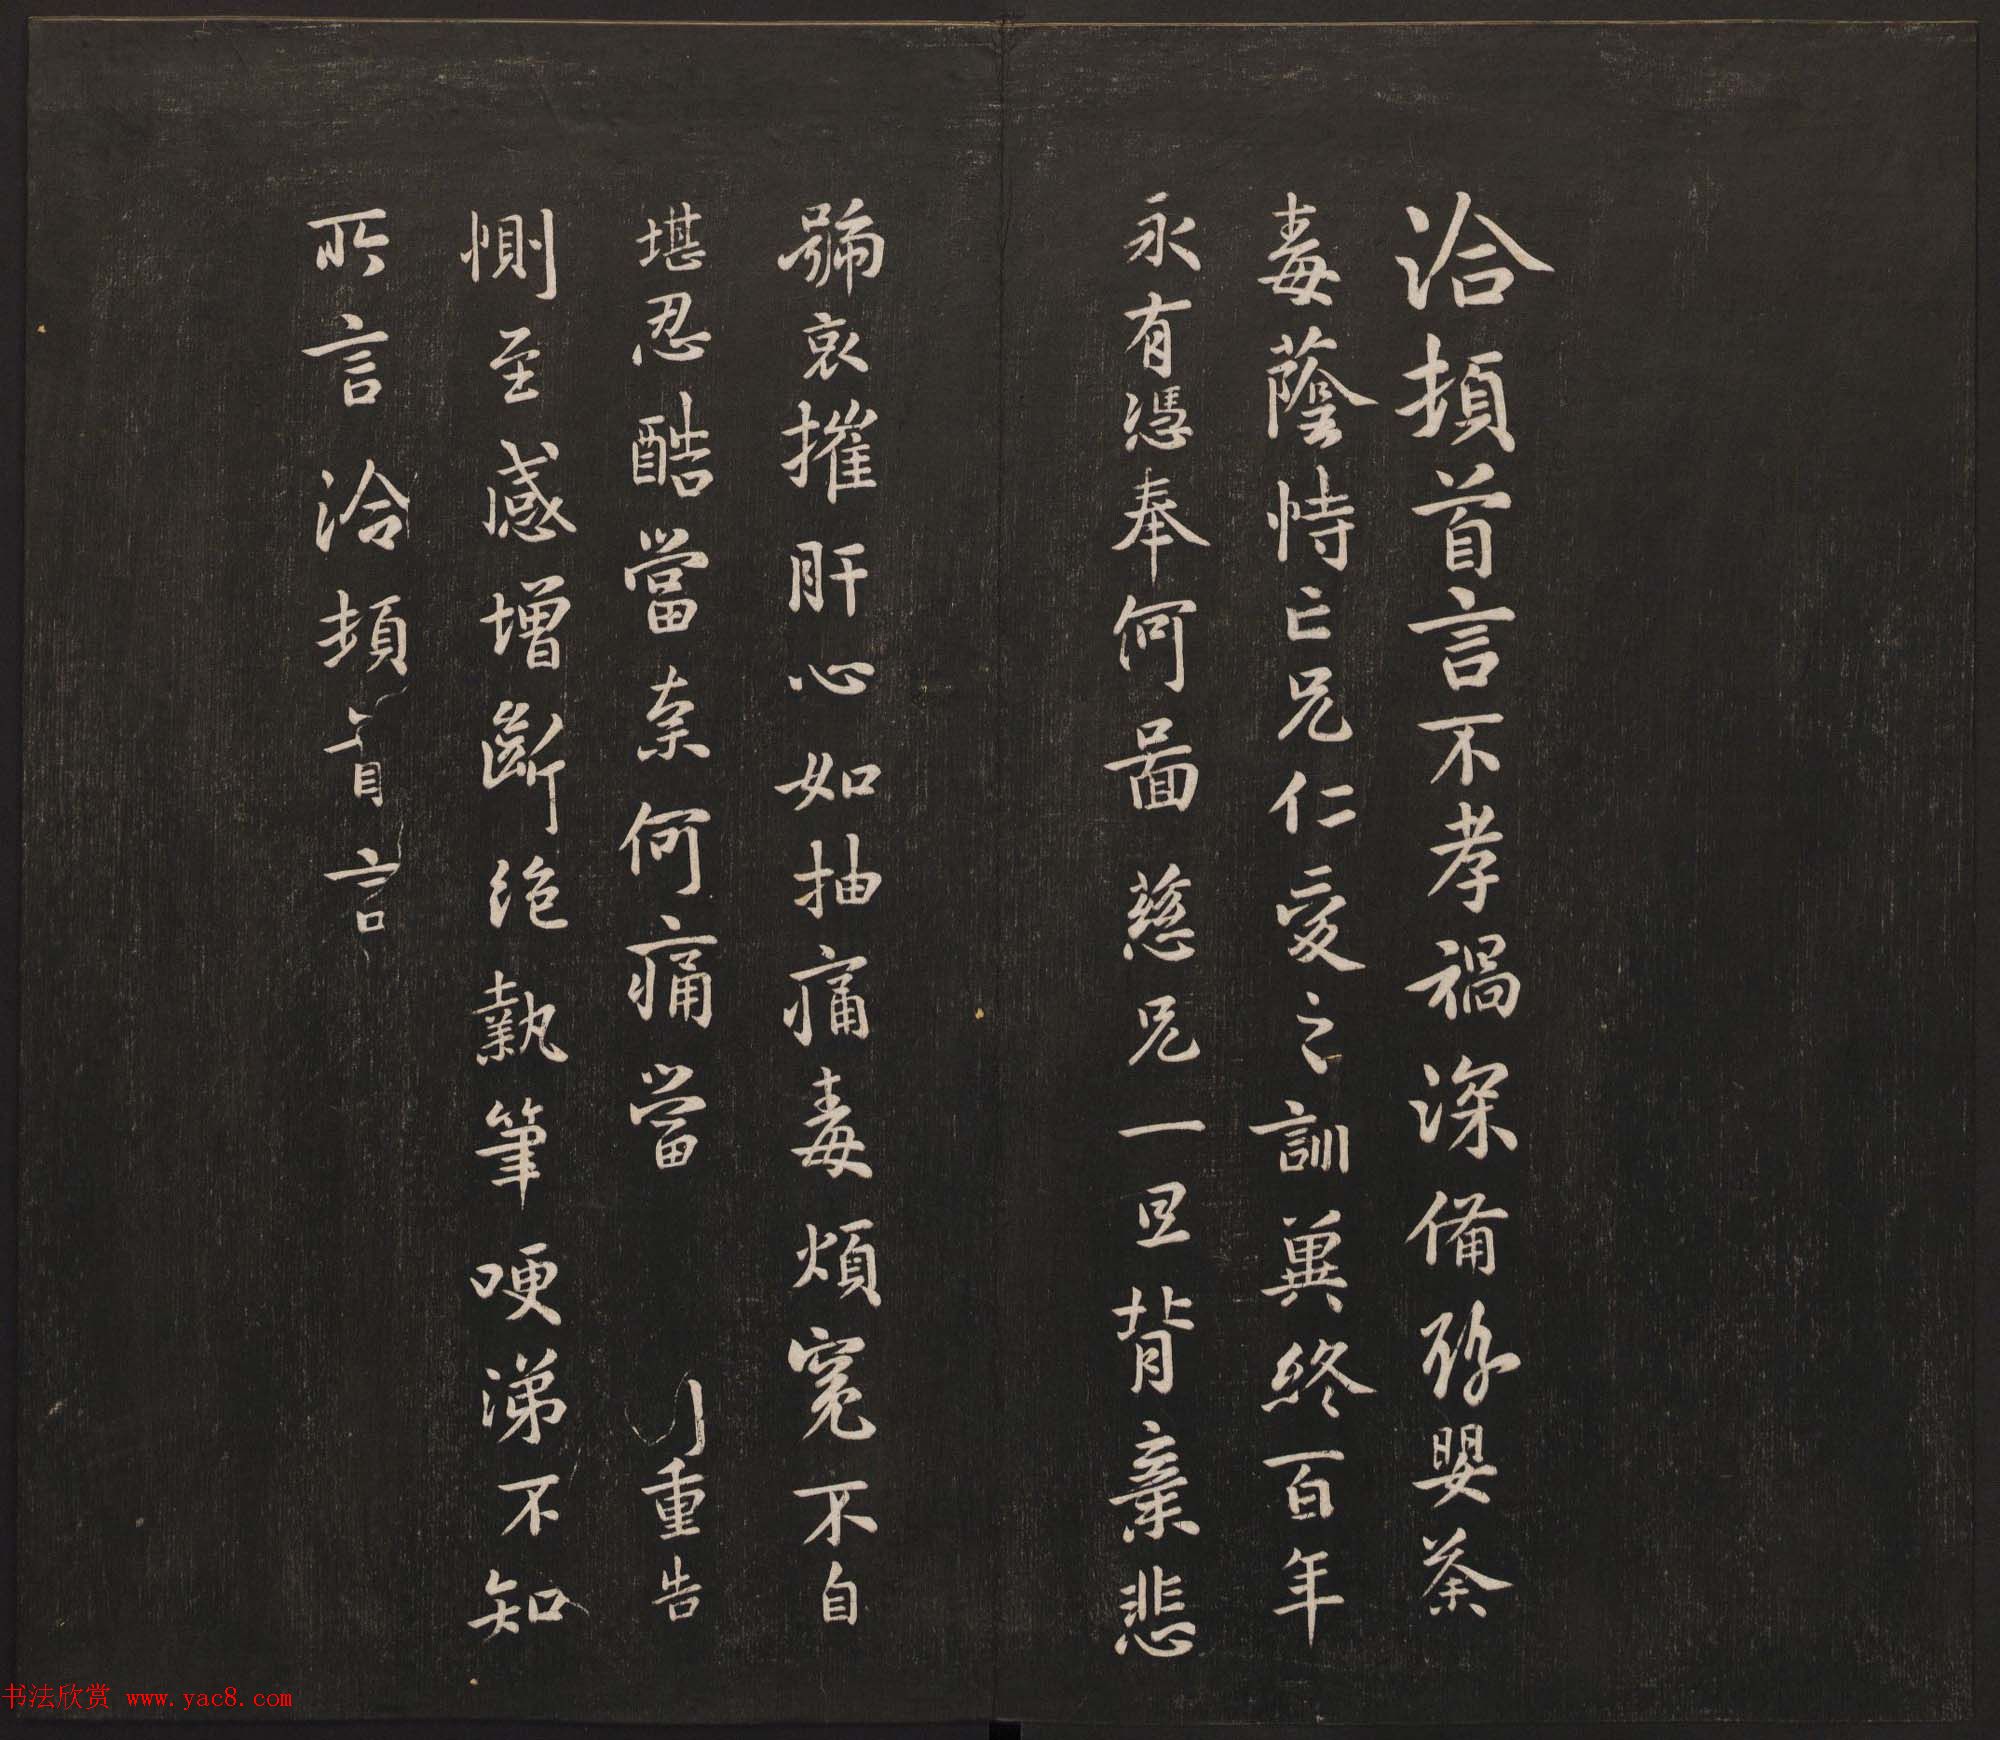 洽頓首言不孝禍深備豫嬰荼
毒蔭恃亡兄仁愛之訓冀終百年
永有憑奉何圖慈兄一旦背棄悲
號哀摧肝心如抽痛毒煩冤不自
堪忍酷當奈何痛當 重告
惻至感增斷絕執筆哽涕不知
所言洽頓首言
书法欣赏 www.yac8.com